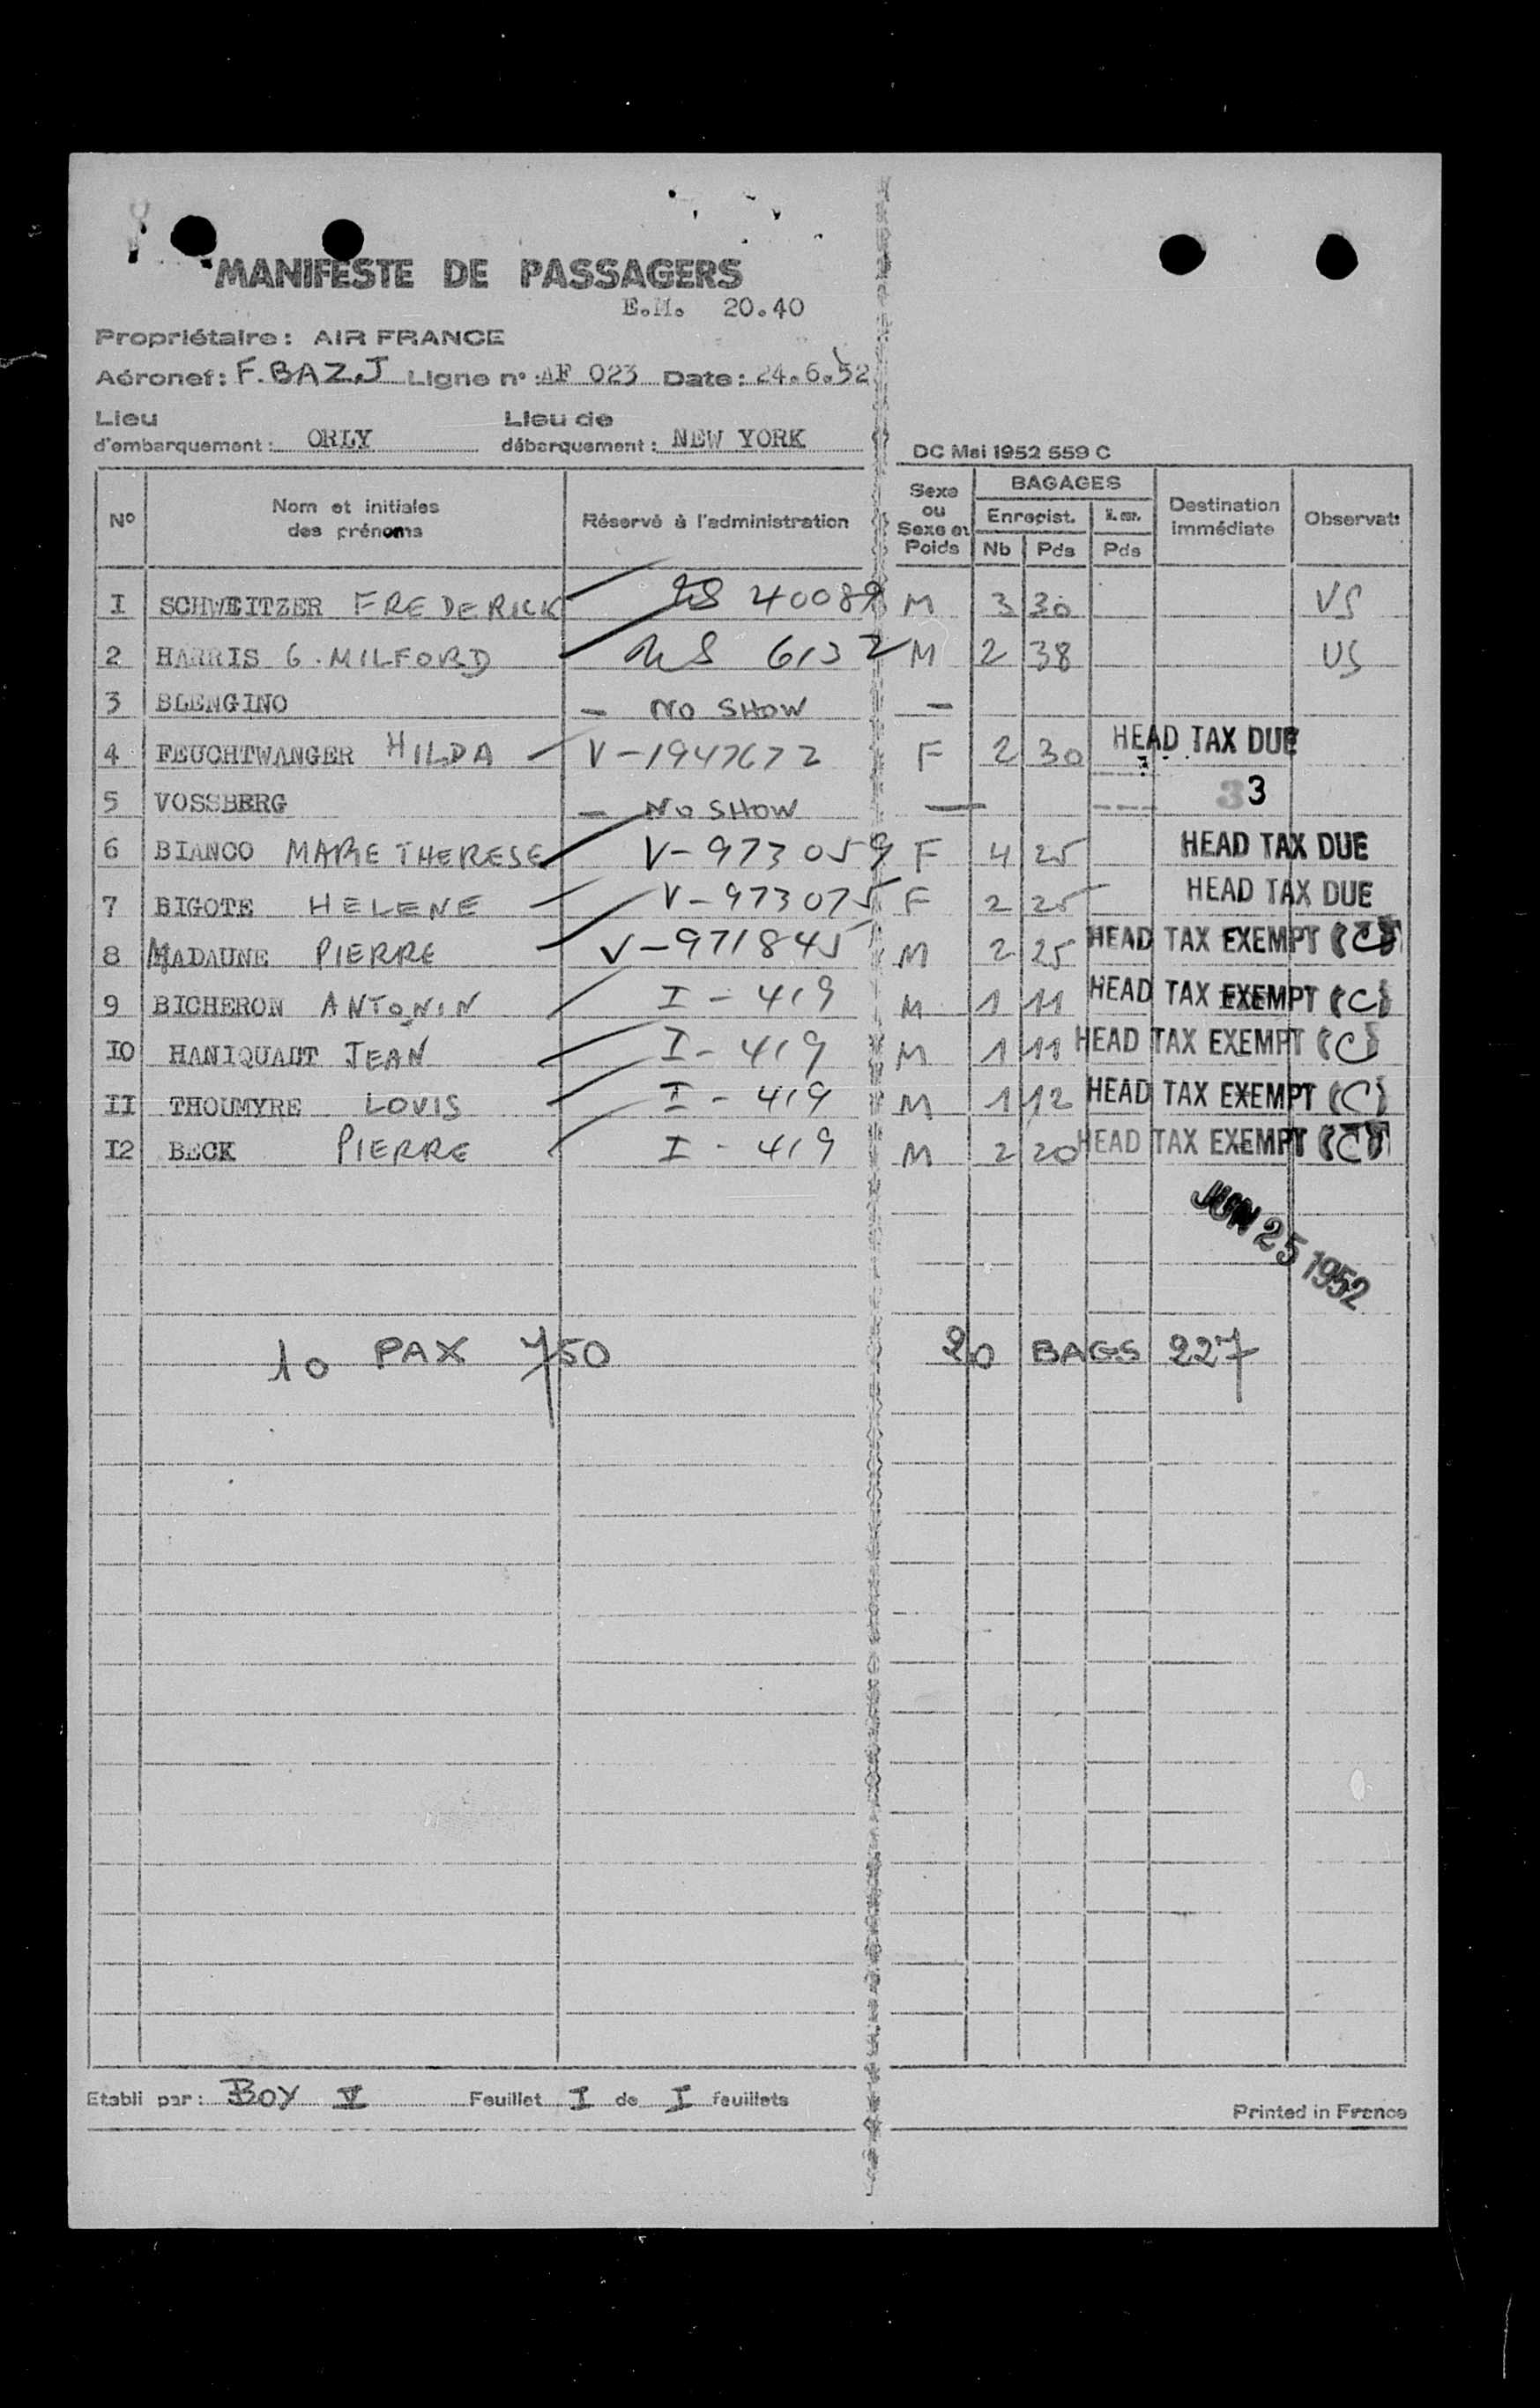 MANIFESTE DE PASSAGERS
E.M. 20.40
Propriétaire : AIR FRANCE
Aéronef : F.BAZ.J Ligne n° : AF 023 Date : 24.6.52
Lieu d'embarquement : ORLY Lieu de débarquement : NEW YORK
DC Mai 1952 559 C
N° Nom et initiales des prénoms Réservé à l'administration Sexe ou Sexe et Poids BAGAGES Enregist. Nb Pds Pds Destination immédiate Observat:
I SCHWEITZER FREDERICK US 40089 M 3 30 US
2 HARRIS G. MILFORD US 6132 M 2 38 US
3 BLENGINO - NO SHOW -
4 FEUCHTWANGER HILDA V-1947672 F 2 30 HEAD TAX DUE
5 VOSSBERG - NO SHOW - 33
6 BIANCO MARIE THERESE V-973059 F 4 25 HEAD TAX DUE
7 BIGOTE HELENE V-973075 F 2 25 HEAD TAX DUE
8 MADAUNE PIERRE V-971845 M 2 25 HEAD TAX EXEMPT (C)
9 BICHERON ANTONIN I-419 M 1 11 HEAD TAX EXEMPT (C)
IO HANIQUAUT JEAN I-419 M 1 11 HEAD TAX EXEMPT (C)
II THOUMYRE LOUIS I-419 M 1 12 HEAD TAX EXEMPT (C)
I2 BECK PIERRE I-419 M 2 20 HEAD TAX EXEMPT (C)
JUN 25 1952
10 PAX 750 20 BAGS 227
Etabli par : BOY V Feuillet I de I feuillets
Printed in France